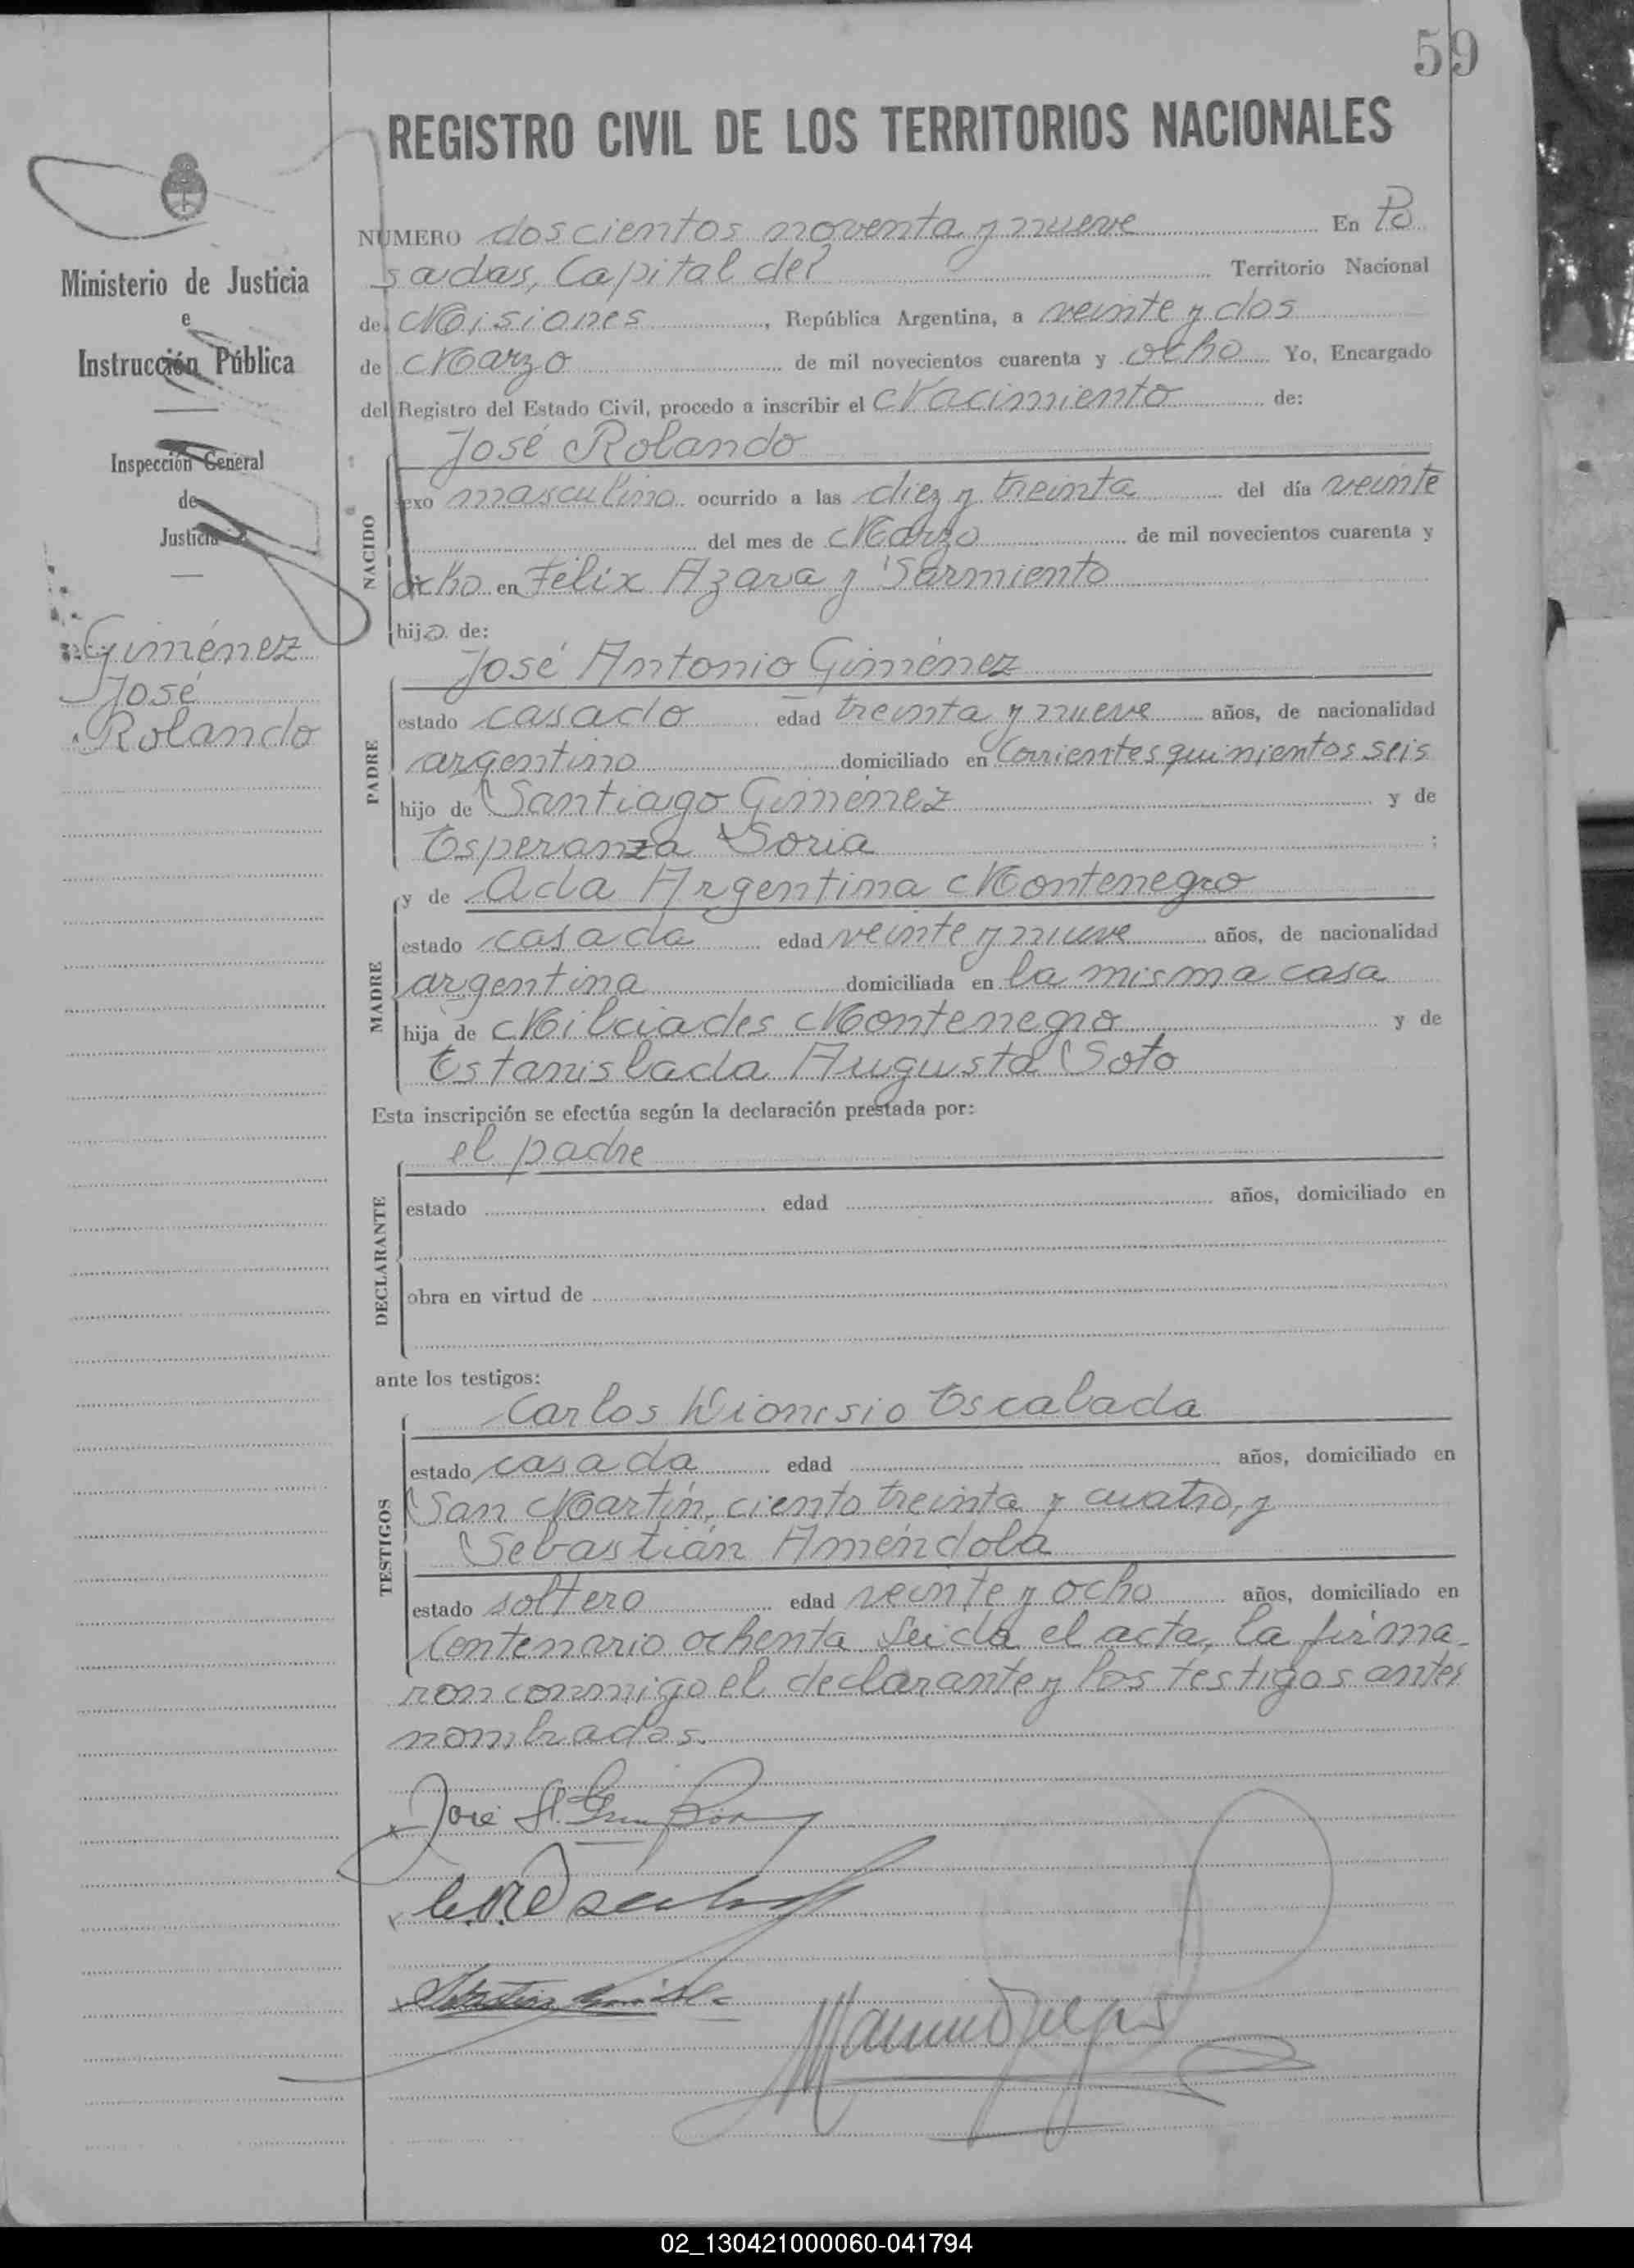 59
REGISTRO CIVIL DE LOS TERRITORIOS NACIONALES
Ministerio de Justicia
e
Instrucción Pública
Inspección General
de
Justicia
Giménez
José
Rolando
NUMERO doscientos noventa y nueve En Po
sadas, Capital del Territorio Nacional
de Misiones, República Argentina, a veinte y dos
de Marzo de mil novecientos cuarenta y ocho Yo, Encargado
del Registro del Estado Civil, procedo a inscribir el Nacimiento de:
José Rolando
NACIDO
sexo masculino ocurrido a las diez y treinta del día veinte
del mes de Marzo de mil novecientos cuarenta y
ocho en Félix Azara y Sarmiento
hijo de:
José Antonio Giménez
PADRE
estado casado edad treinta y nueve años, de nacionalidad
argentino domiciliado en Corrientes quinientos seis
hijo de Santiago Giménez y de
Esperanza Soria ;
y de Ada Argentina Montenegro
MADRE
estado casada edad veinte y nueve años, de nacionalidad
argentina domiciliada en la misma casa
hija de Milciades Montenegro y de
Estanislada Augusta Soto
Esta inscripción se efectúa según la declaración prestada por:
el padre
DECLARANTE
estado edad años, domiciliado en
obra en virtud de
ante los testigos:
Carlos Dionisio Escalada
TESTIGOS
estado casada edad años, domiciliado en
San Martín, ciento treinta y cuatro, y
Sebastián Améndola
estado soltero edad veinte y ocho años, domiciliado en
Centenario ochenta Leida el acta, la firma-
ron conmigo el declarante y los testigos antes
nombrados.
José
02_130421000060-041794